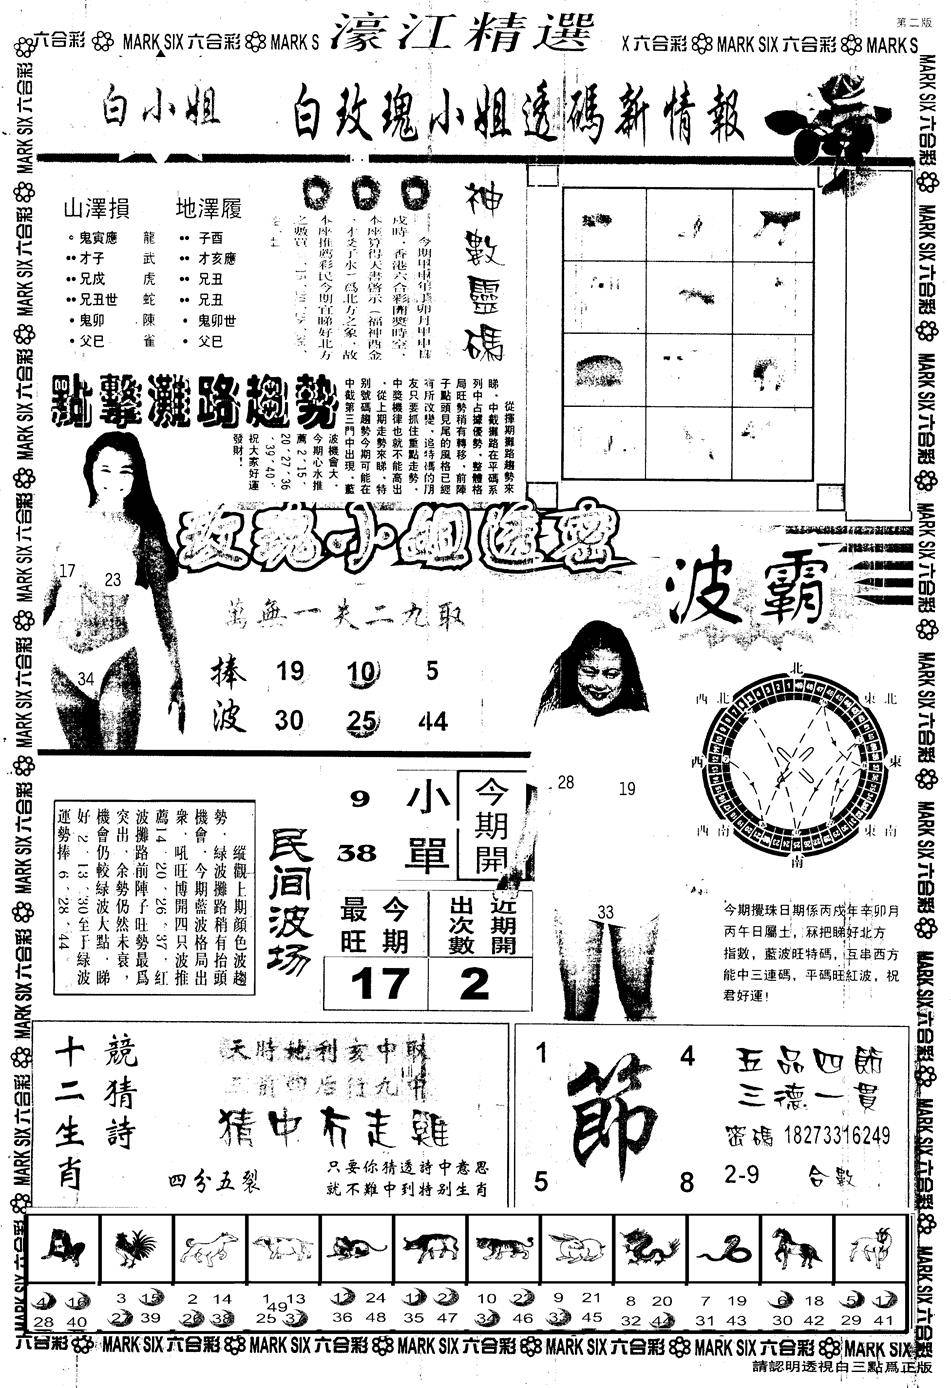 第二版
六合彩 MARK SIX 六合彩 MARK S 濠江精選 X 六合彩 MARK SIX 六合彩 MARK S
白小姐 白玫瑰小姐透碼新情報
山澤損 地澤履
鬼寅應 龍 子酉
才子 武 才亥應
兄戌 虎 兄丑
兄丑世 蛇 兄丑
鬼卯 陳 鬼卯世
父巳 雀 父巳
神數靈碼
戌時,香港六合彩開獎時空,
本座算得天書啓示(福神酉金
、才爻子水)爲北方之象,故
本座推薦彩民今期宜睇好北方
點擊灘路趨勢
從揮期攤路趨勢來
睇,中截攤路在平碼系
列中占據優勢,整體格
局旺勢稍有轉移,前陣
子點頭見尾的風格已經
有所改變,追特碼的朋
友只要抓住重點走勢,
中獎機律也就不能高出
、從上期走勢來睇,特
别號碼趨勢今期可能在
中截第三門中出現,藍
波機會大,
今期心水推
薦2·15·
20·27·36
·39·40,
祝大家好運
發財!
玫瑰小姐透密
17 23
34
萬無一失二九取
捧波
19 10 5
30 25 44
波霸
28 19
33
北
西北 東北
西 東
西南 東南
南
縱觀上期顔色波趨
勢,緑波攤路稍有抬頭
機會,今期藍波格局出
衆,吼旺博開四只波推
薦14·20·26·37,紅
波攤路前陣子旺勢最爲
突出,余勢仍然未衰,
機會仍較緑波大點,睇
好2·13·30至于緑波
運勢捧6·28·44。
民间波场
9 小
38 單
今期開
今期最旺 近期開出次數
17 2
今期攪珠日期係丙戌年辛卯月
丙午日屬土,冧把睇好北方
指數,藍波旺特碼,互串西方
能中三連碼,平碼旺紅波,祝
君好運!
十二生肖
競猜詩
天時地利亥中取
三前四后行九中
猜中有走雞
四分五裂
只要你猜透詩中意思
就不難中到特别生肖
1 4
節
5 8
五品四節
三德一貫
密碼 18273316249
2-9 合數
4 16 3 15 2 14 1 13 12 24 11 23 10 22 9 21 8 20 7 19 6 18 5 17
28 40 27 39 26 38 25 37 49 36 48 35 47 34 46 33 45 32 44 31 43 30 42 29 41
六合彩 MARK SIX 六合彩 MARK SIX 六合彩 MARK SIX 六合彩 MARK SIX 六合彩 MARK SIX 六合彩 MARK SIX
請認明透視白三點爲正版